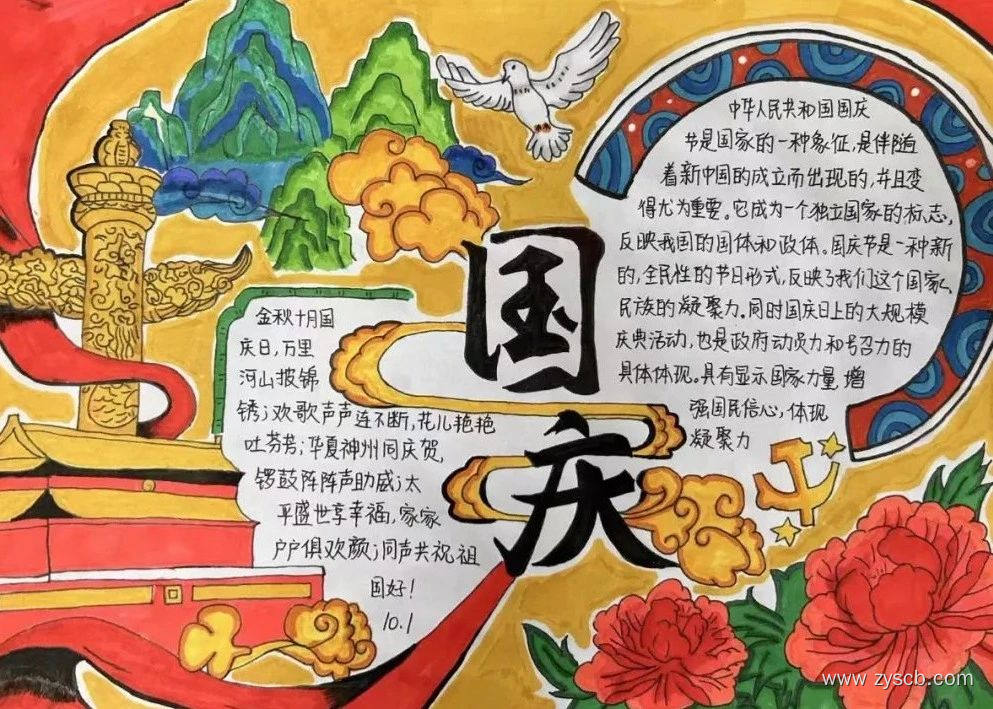 国
庆
中华人民共和国国庆
节是国家的一种象征,是伴随
着新中国的成立而出现的,并且变
得尤为重要。它成为一个独立国家的标志,
反映我国的国体和政体。国庆节是一种新
的,全民性的节日形式,反映了我们这个国家、
民族的凝聚力。同时国庆日上的大规模
庆典活动,也是政府动员力和号召力的
具体体现。具有显示国家力量 增
强国民信心,体现
凝聚力
金秋十月国
庆日,万里
河山披锦
锈;欢歌声声连不断,花儿艳艳
吐芬芳;华夏神州同庆贺,
锣鼓阵阵声助威;太
平盛世享幸福,家家
户户俱欢颜;同声共祝祖
国好!
10.1
www.zyscb.com